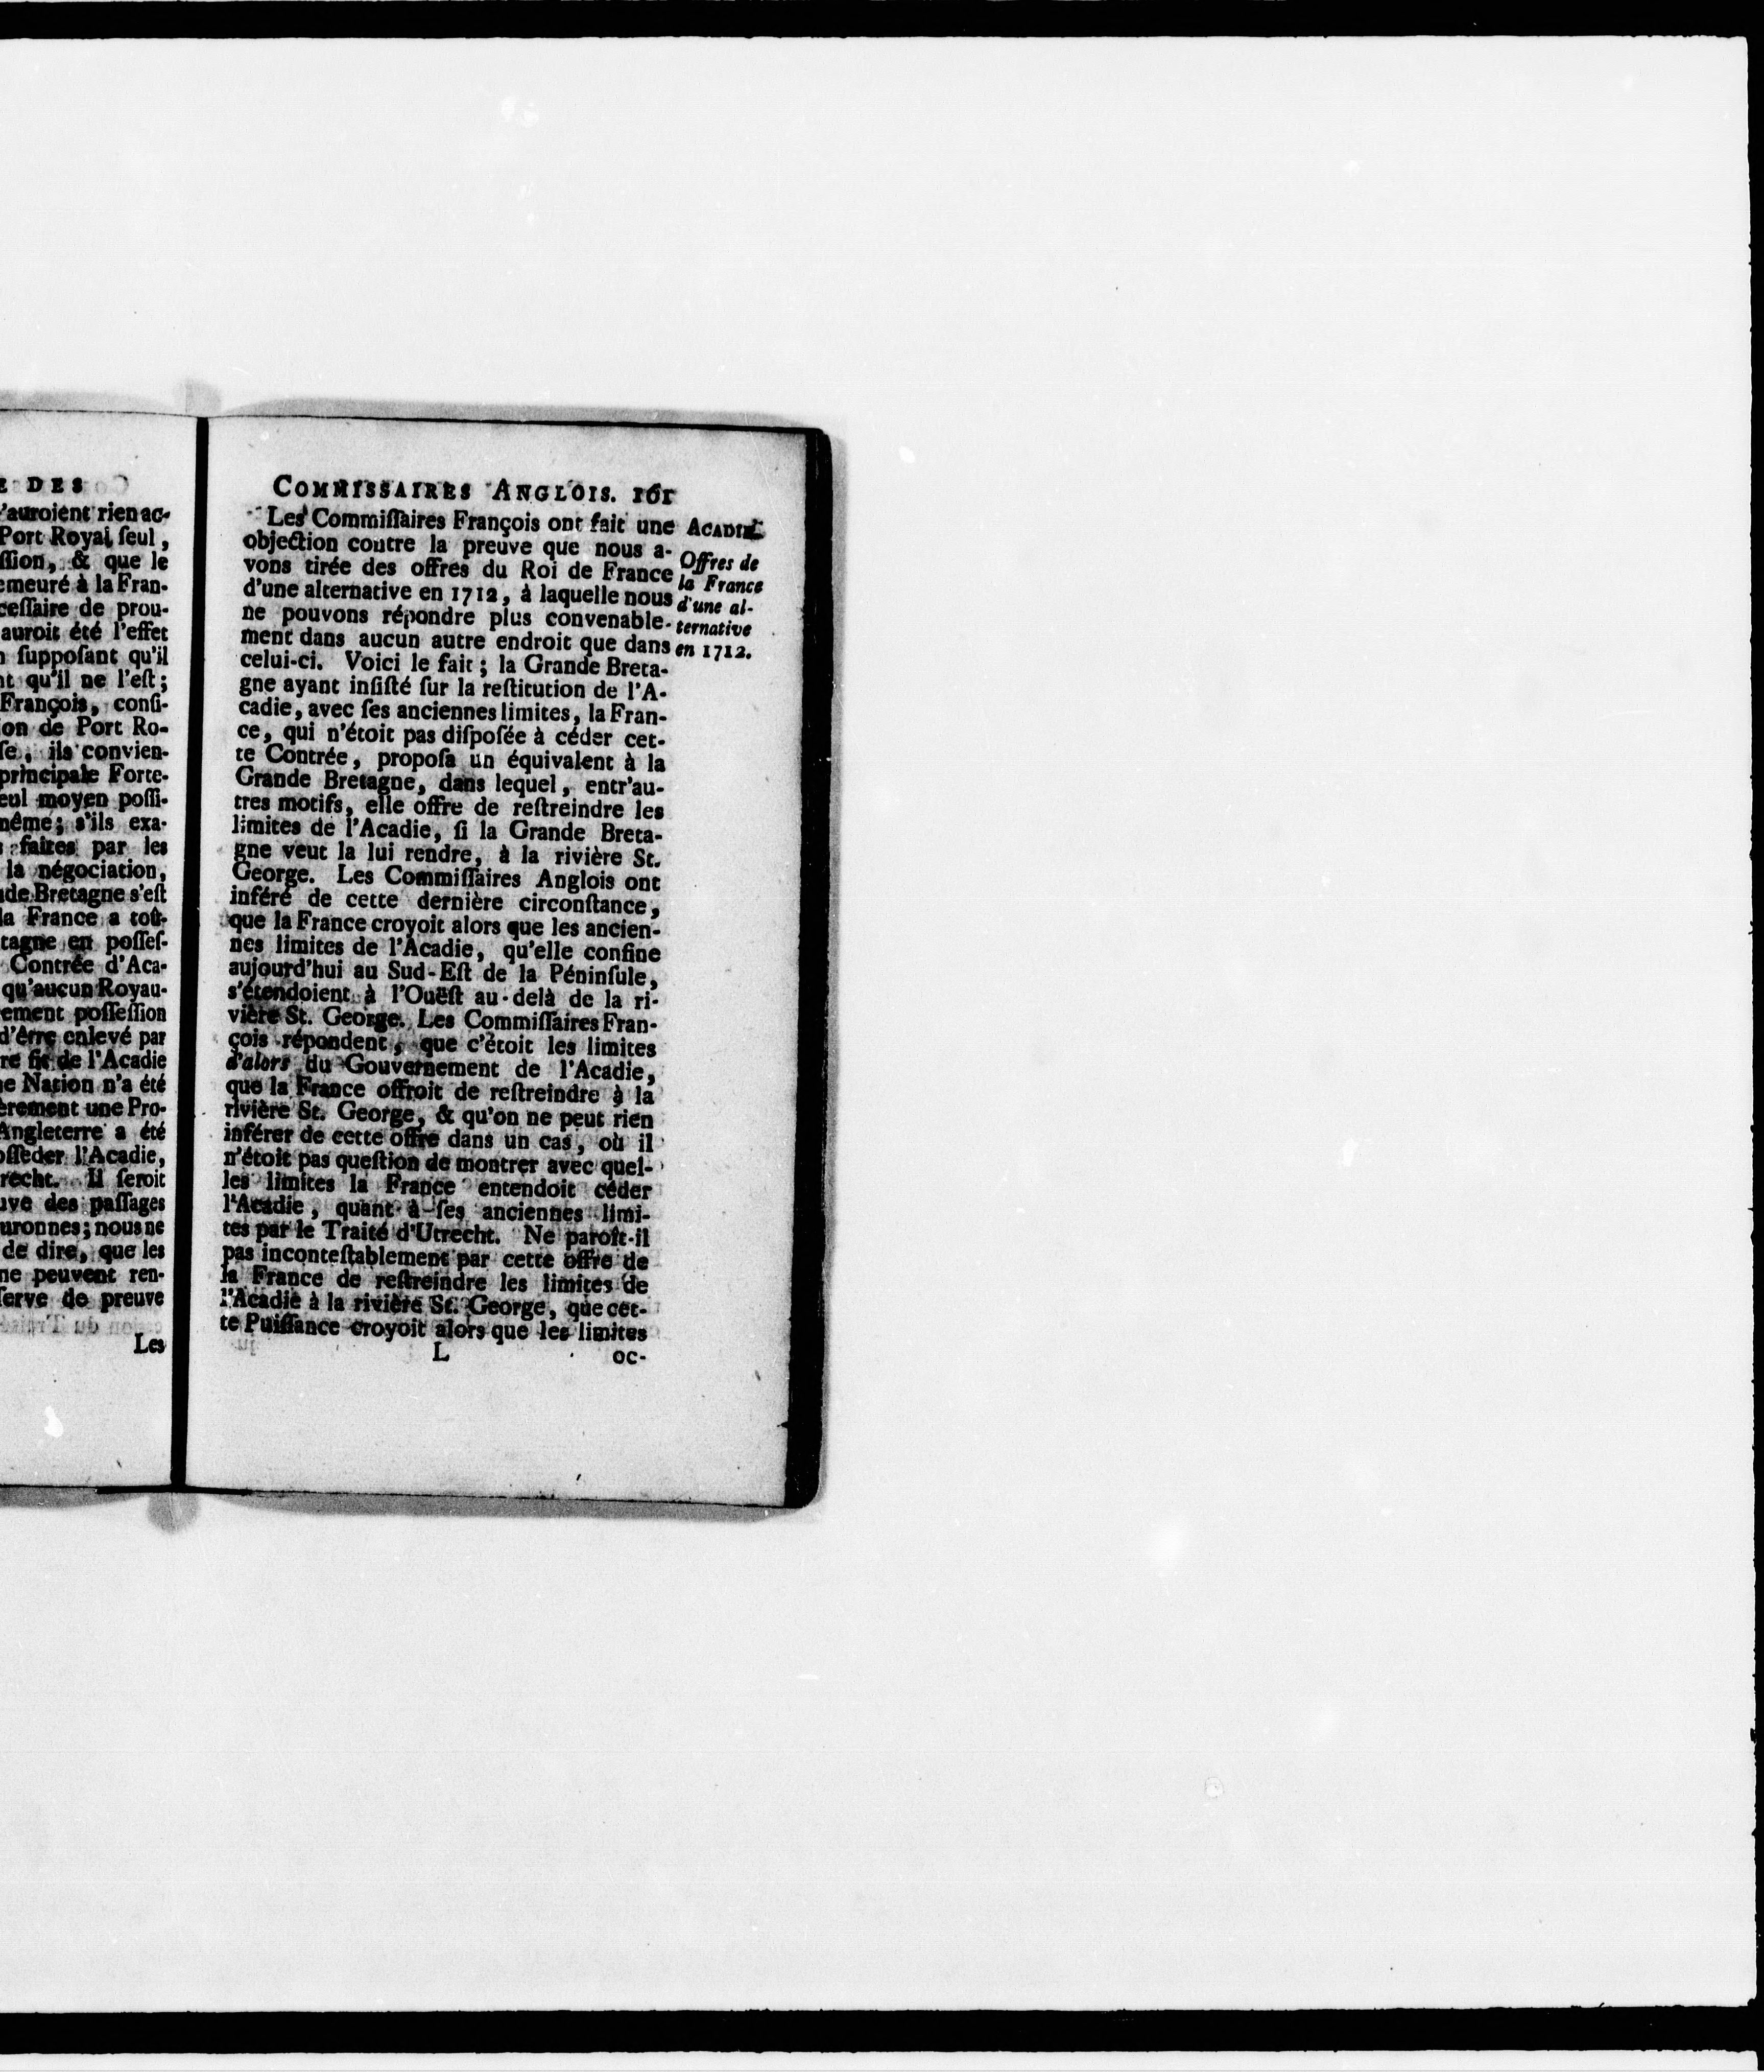 E DES
'auroient rien ac-
Port Royal ſeul,
ſſion, & que le
emeuré à la Fran-
ceſſaire de prou-
auroit été l'effet
n ſuppoſant qu'il
nt qu'il ne l'eſt;
François, conſi-
ion de Port Ro-
ſe, ils convien-
principale Forte-
eul moyen poſſi-
même; s'ils exa-
s faites par les
la négociation,
nde Bretagne s'eſt
la France a toû-
tagne en poſſeſ-
Contrée d'Aca-
qu'aucun Royau-
rement poſſeſſion
d'être enlevé par
re fit de l'Acadie
ne Nation n'a été
èrement une Pro-
Angleterre a été
oſſeder l'Acadie,
recht. Il ſeroit
uve des paſſages
uronnes; nous ne
de dire, que les
ne peuvent ren-
ſerve de preuve
Les
COMMISSAIRES ANGLOIS. 161
Les Commiſſaires François ont fait une
objection contre la preuve que nous a-
vons tirée des offres du Roi de France
d'une alternative en 1712, à laquelle nous
ne pouvons répondre plus convenable-
ment dans aucun autre endroit que dans
celui-ci. Voici le fait; la Grande Breta-
gne ayant inſiſté ſur la reſtitution de l'A-
cadie, avec ſes anciennes limites, la Fran-
ce, qui n'étoit pas diſpoſée à céder cet-
te Contrée, propoſa un équivalent à la
Grande Bretagne, dans lequel, entr'au-
tres motifs, elle offre de reſtreindre les
limites de l'Acadie, ſi la Grande Breta-
gne veut la lui rendre, à la rivière St.
George. Les Commiſſaires Anglois ont
inféré de cette dernière circonſtance,
que la France croyoit alors que les ancien-
nes limites de l'Acadie, qu'elle confine
aujourd'hui au Sud-Eſt de la Péninſule,
s'étendoient à l'Ouëſt au-delà de la ri-
vière St. George. Les Commiſſaires Fran-
çois répondent, que c'étoit les limites
d'alors du Gouvernement de l'Acadie,
que la France offroit de reſtreindre à la
rivière St. George, & qu'on ne peut rien
inférer de cette offre dans un cas, où il
n'étoit pas queſtion de montrer avec quel-
les limites la France entendoit céder
l'Acadie, quant à ſes anciennes limi-
tes par le Traité d'Utrecht. Ne paroît-il
pas inconteſtablement par cette offre de
la France de reſtreindre les limites de
l'Acadie à la rivière St. George, que cet-
te Puiſſance croyoit alors que les limites
L oc-
ACADIE
Offres de
la France
d'une al-
ternative
en 1712.